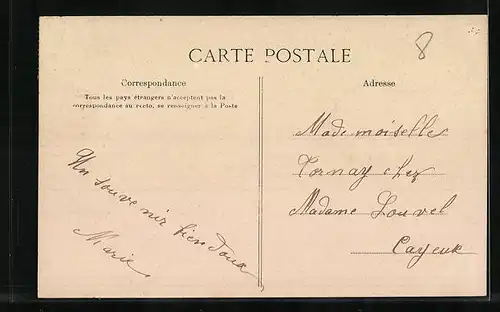 8
CARTE POSTALE
Correspondance
Tous les pays étrangers n'acceptent pas la
correspondance au recto, se renseigner à la Poste
Un souvenir bien doux
Marie
Adresse
Mademoiselle
Tornay chez
Madame Louvel
Cayeux